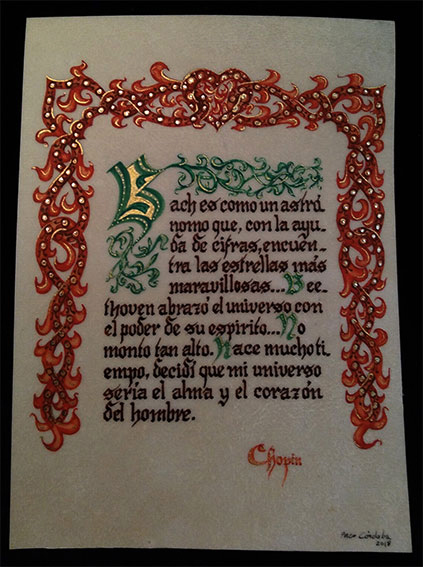 Bach es como un astró
nomo que, con la ayu-
da de cifras, encuen-
tra las estrellas más
maravillosas... Bee-
thoven abrazó el universo con
el poder de su espíritu... No
monto tan alto. Hace mucho ti
empo, decidí que mi universo
sería el alma y el corazón
del hombre.
Chopin
Córdoba
2018